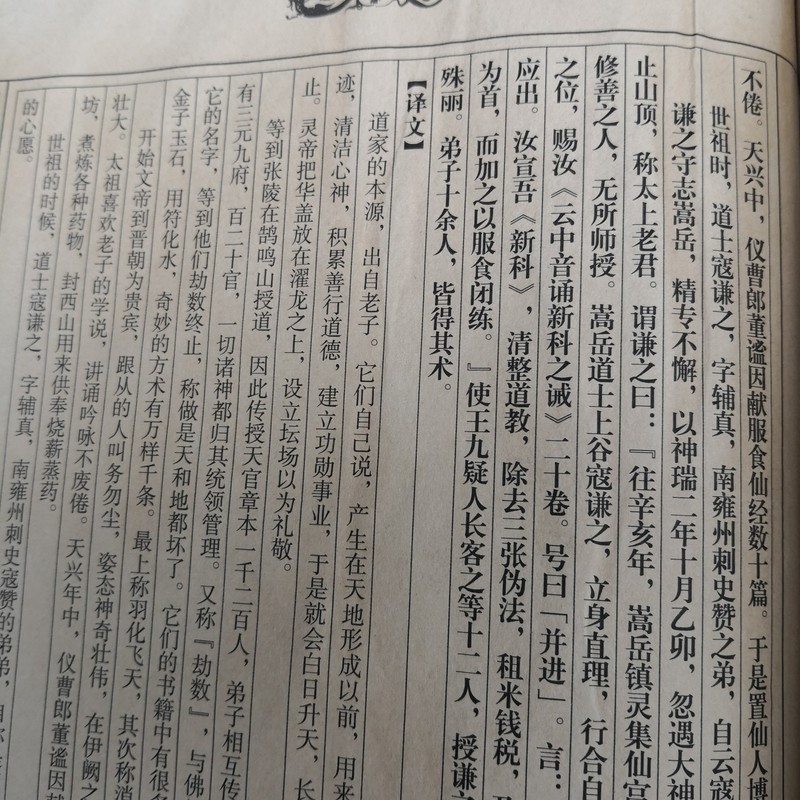 不倦。天兴中，仪曹郎董谧因献服食仙经数十篇。于是置仙人博
世祖时，道士寇谦之，字辅真，南雍州刺史赞之弟，自云寇
谦之守志嵩岳，精专不懈，以神瑞二年十月乙卯，忽遇大神
止山顶，称太上老君。谓谦之曰：『往辛亥年，嵩岳镇灵集仙宫
修善之人，无所师授。嵩岳道士上谷寇谦之，立身直理，行合自
之位，赐汝《云中音诵新科之诫》二十卷。号曰「并进」。言：
应出。汝宣吾《新科》，清整道教，除去三张伪法，租米钱税，
为首，而加之以服食闭练。』使王九疑人长客之等十二人，授谦之
殊丽。弟子十余人，皆得其术。
【译文】
道家的本源，出自老子。它们自己说，产生在天地形成以前，用来
迹，清洁心神，积累善行道德，建立功勋事业，于是就会白日升天，长
止。灵帝把华盖放在濯龙之上，设立坛场以为礼敬。
等到张陵在鹄鸣山授道，因此传授天官章本一千二百人，弟子相互传
有三元九府，百二十官，一切诸神都归其统领管理。又称『劫数』，与佛
它的名字，等到他们劫数终止，称做是天和地都坏了。它们的书籍中有很多
金子玉石，用符化水，奇妙的方术有万样千条。最上称羽化飞天，其次称消
开始文帝到晋朝为贵宾，跟从的人叫务勿尘，姿态神奇壮伟，在伊阙之
壮大。太祖喜欢老子的学说，讲诵吟咏不废倦。天兴年中，仪曹郎董谧因献
坊，煮炼各种药物，封西山用来供奉烧薪蒸药。
世祖的时候，道士寇谦之，字辅真，南雍州刺史寇赞的弟弟，自称
的心愿。